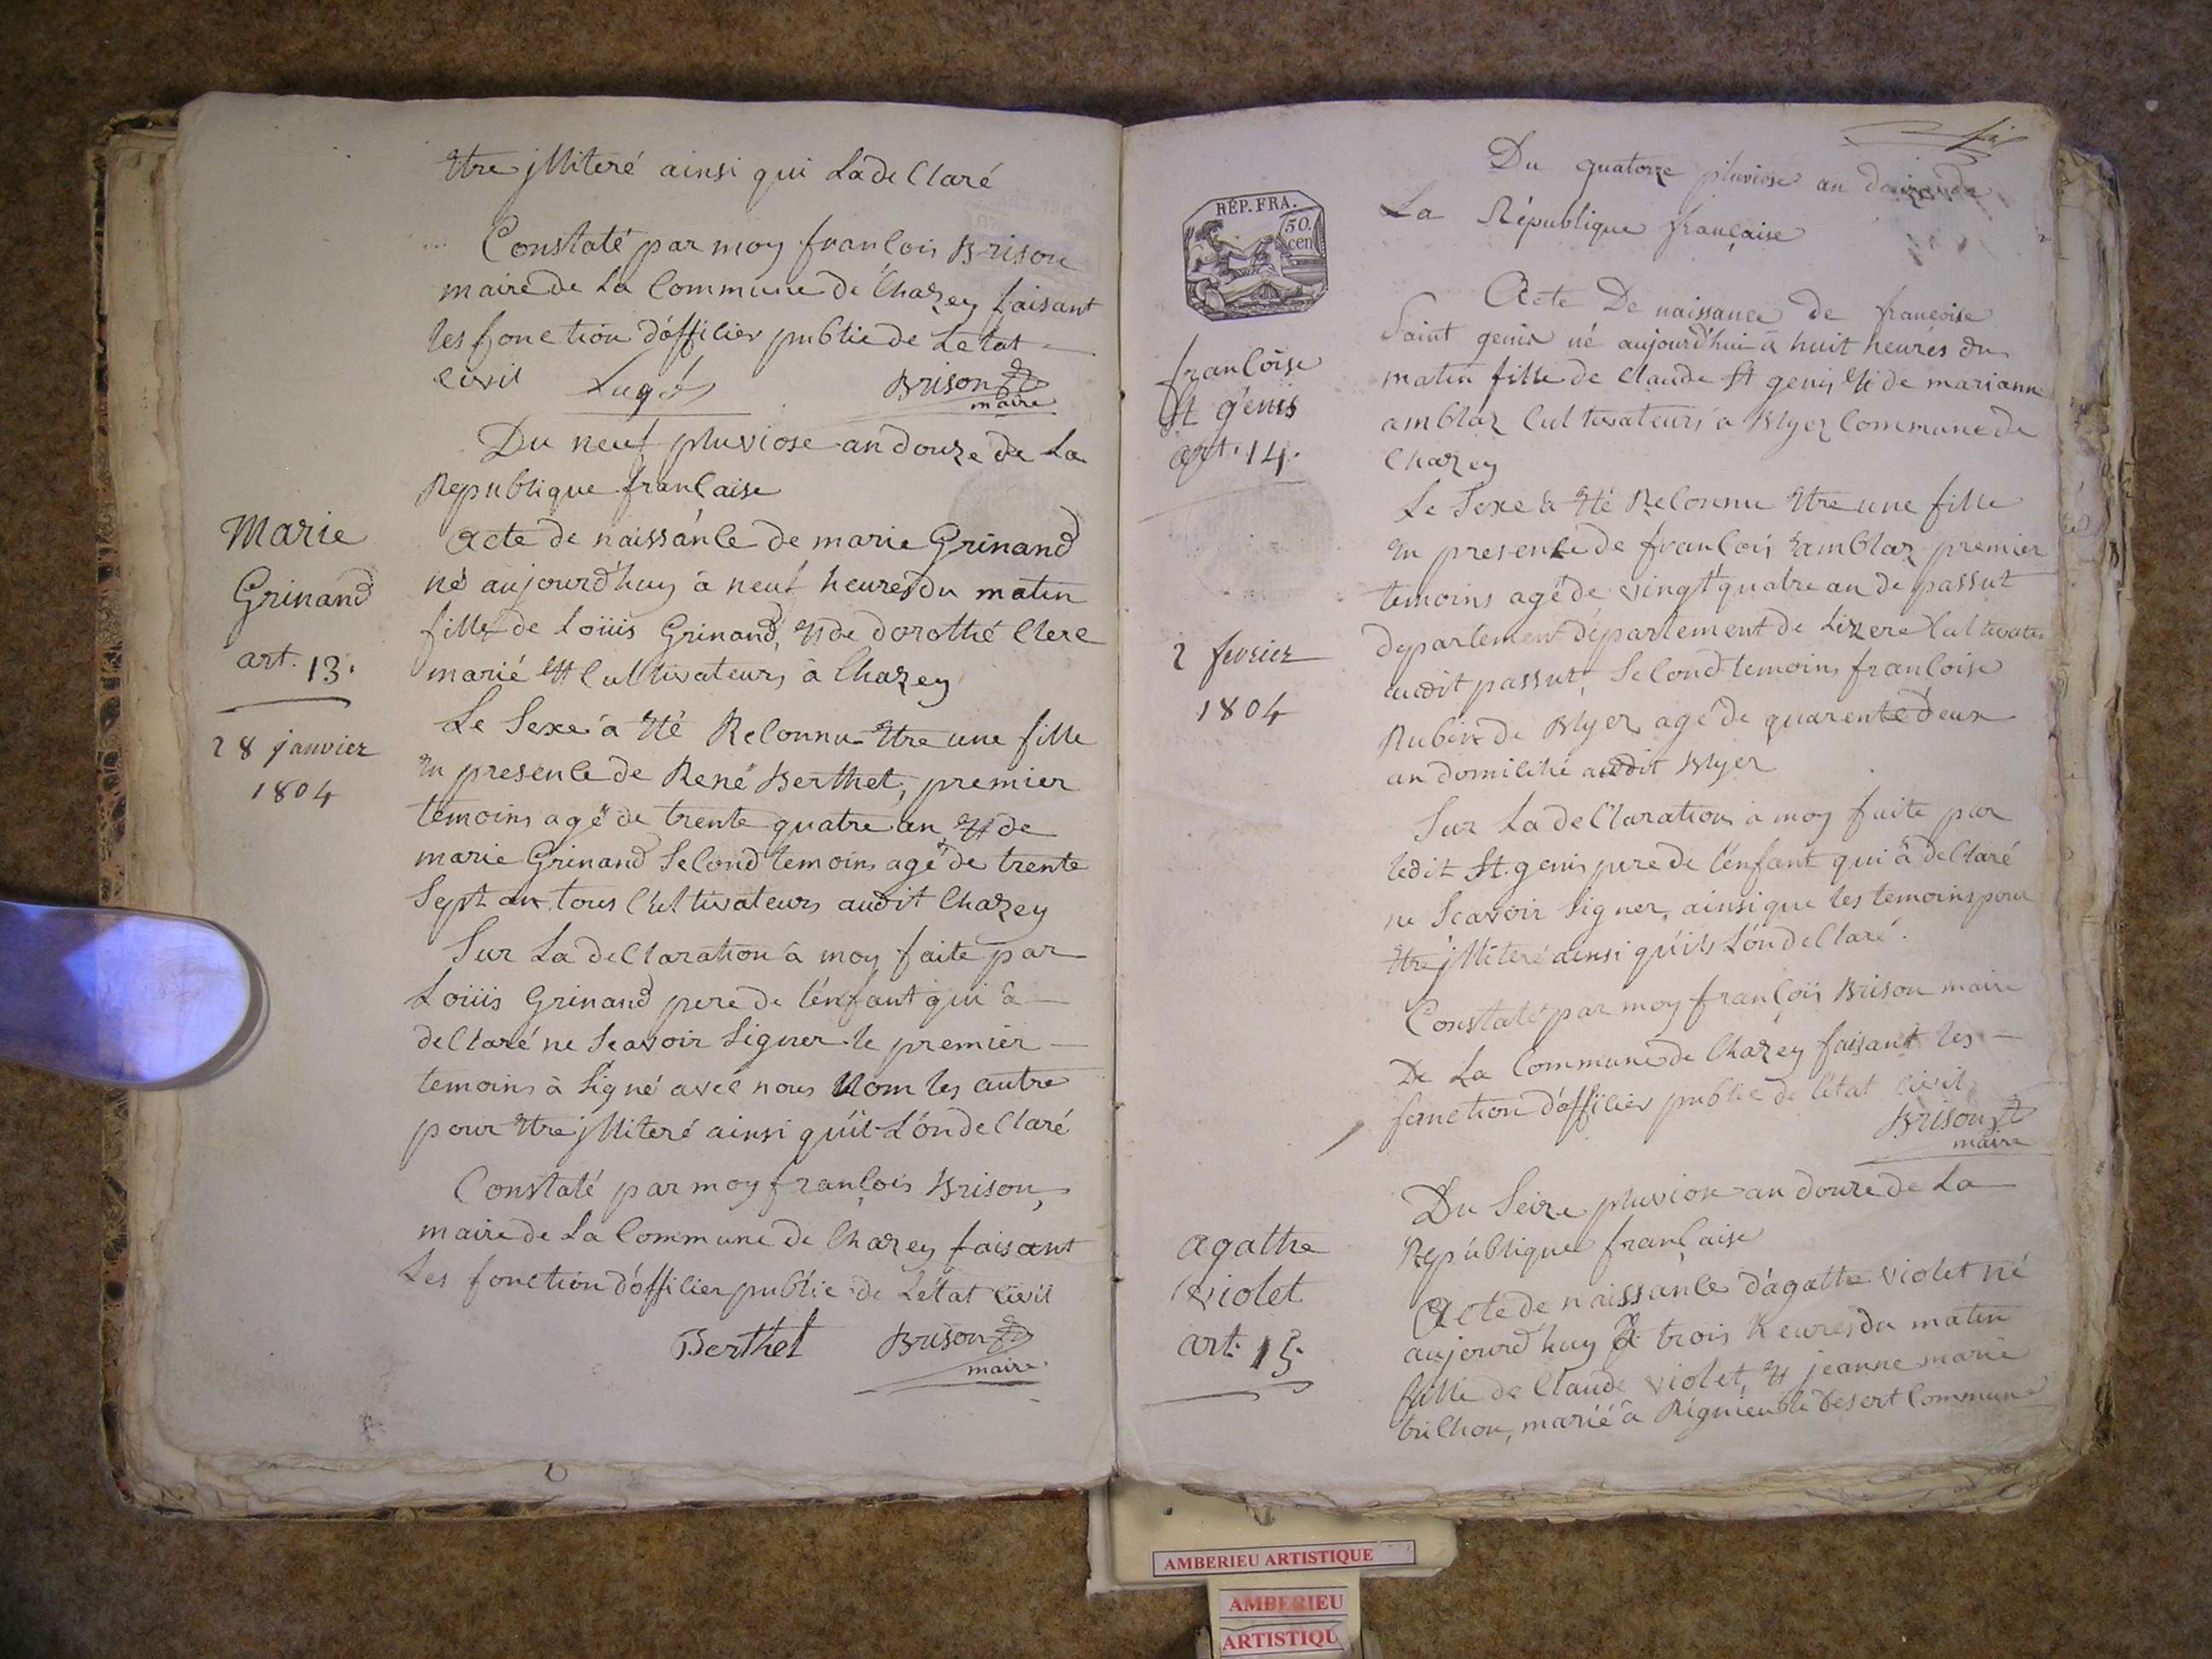 être jlliteré ainsi qui La de Claré
Constaté par moy françois Brison
maire de La Commune de Chazey faisant
les fonction d'officier public de Letat
Civil Brison
maire
Du neuf pluviose an douze de La
Republique française
Marie
Grinand
art. 13.
28 janvier
1804
acte de naissance de marie Grinand
né aujourd'huy à neuf heures du matin
fille de Loüis Grinand, et de dorothé Clerc
marié et Cultivateurs à Chazey
Le Sexe à été Reconnu être une fille
en presence de René Berthet, premier
temoins agé de trente quatre an et de
marie Grinand Second temoins agé de trente
Sept an tous Cultivateurs audit Chazey
Sur La declaration à moy faite par
Loüis Grinand pere de l'enfant qui à
declaré ne Scavoir Signer le premier
temoins à Signé avec nous Nom les autre
pour être jlliteré ainsi qu'il L'on declaré
Constaté par moy françois Brison,
maire de La Commune de Chazey faisant
Les fonction d'officier public de L'état Civil
Berthet Brison
maire
Du quatorze pluviose an douze de
La République française
RÉP. FRA.
50.
cen
françoise
St genis
art. 14.
2 fevrier
1804
Acte De naissance de francoise
Saint genis né aujourd'hui à huit heures du
matin fille de Claude St genis et de marianne
amblaz Cultivateurs a Blyez Commune de
Chazey
Le Sexe à été Reconnu être une fille
en presence de françois amblaz premier
temoins agé de vingt quatre an de passut
departement departement de Lizere Cultivateur
audit passut, Second temoins françoise
Rubin de Blyez agé de quarente deux
an domicilié audit Blyez
Sur La declaration à moy faite par
ledit St. genis pere de l'enfant qui à declaré
ne Scavoir Signer, ainsi que les temoins pour
être jlliteré ainsi qu'ils L'on declaré.
Constaté par moy françois Brison maire
De La Commune de Chazey faisant les
fonction d'officier public de l'état Civil
Brison
maire
Du Seize pluviose an douze de La
République française
agathe
violet
art. 15.
Acte de naissance d'agathe violet né
aujourd'huy à trois heures du matin
fille de Claude violet, et jeanne marie
trichon, marié à Rignieu le Desert Commune
AMBERIEU ARTISTIQUE
AMBERIEU
ARTISTIQU